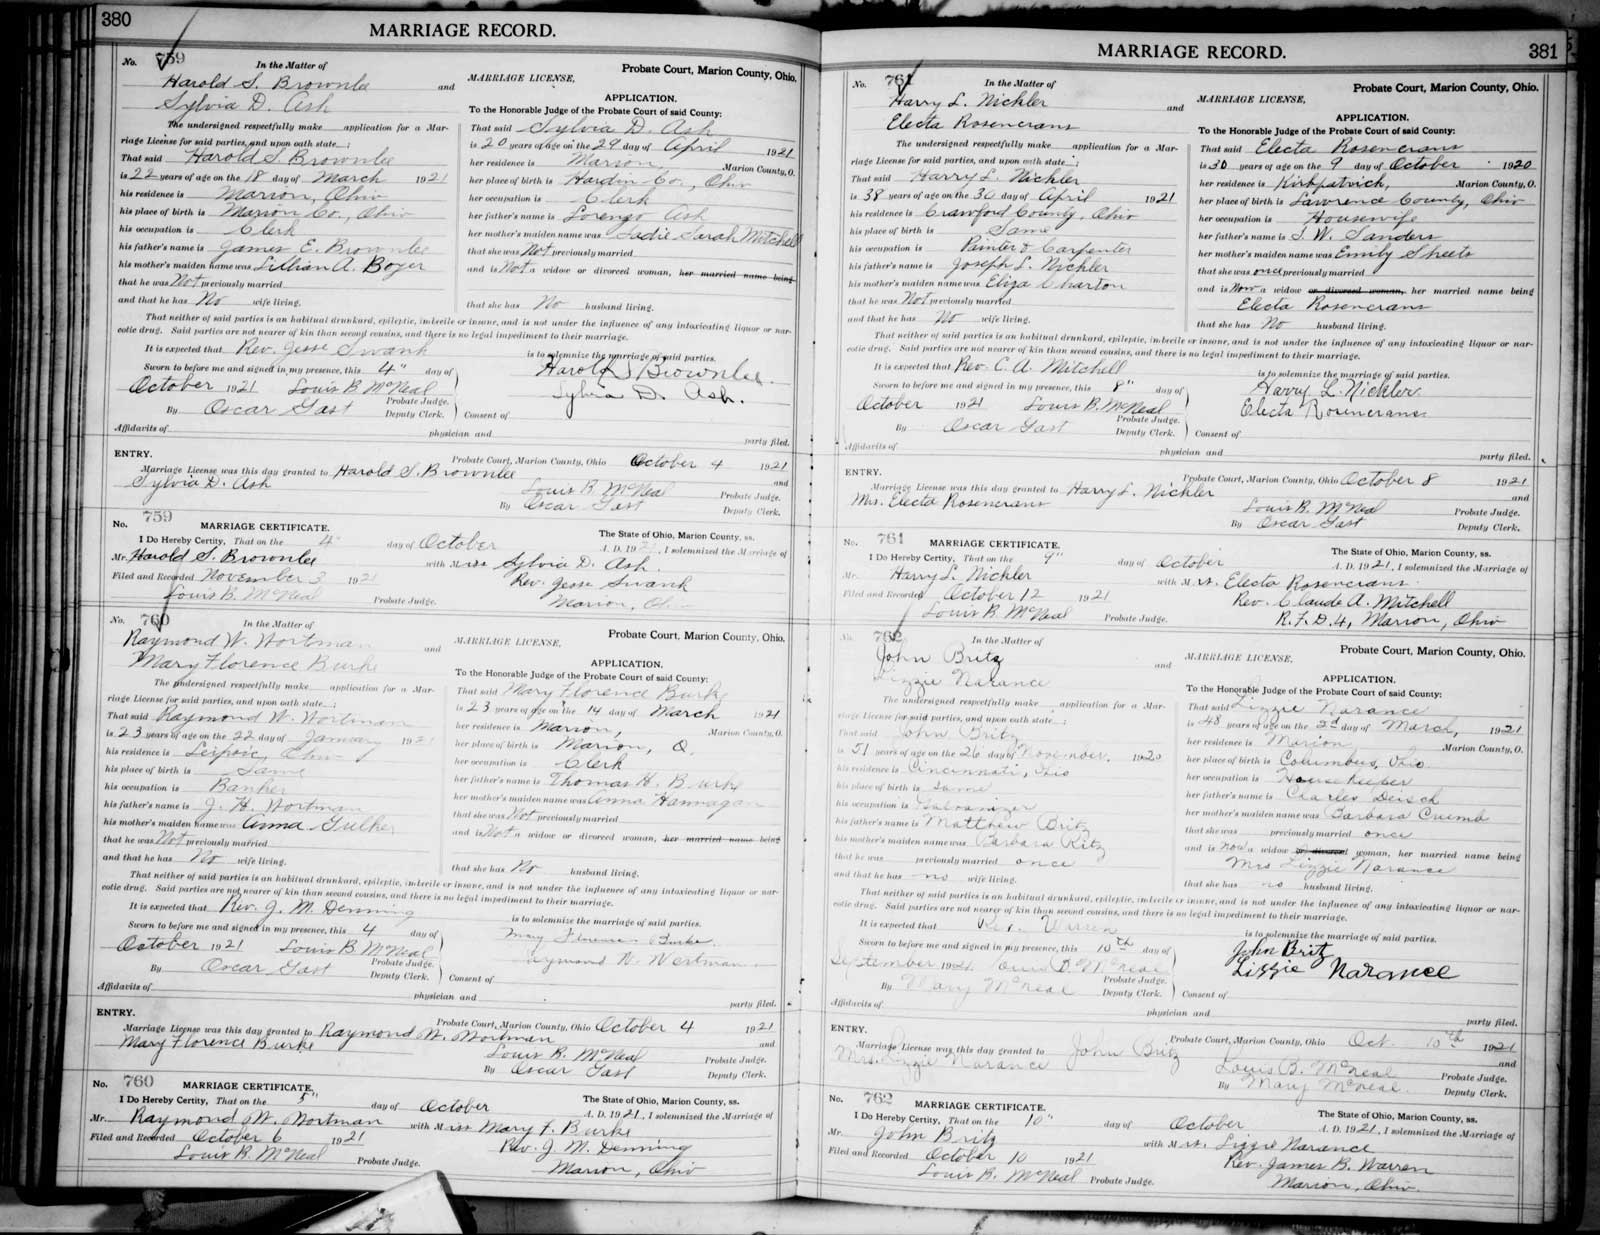 380
MARRIAGE RECORD.
No. 759
In the Matter of
Harold S. Brownlee and
Sylvia D. Ash
MARRIAGE LICENSE,
Probate Court, Marion County, Ohio.
The undersigned respectfully make application for a Mar-
riage License for said parties, and upon oath state :
That said Harold S. Brownlee
is 22 years of age on the 18 day of March 1921
his residence is Marion, Ohio
his place of birth is Marion Co., Ohio
his occupation is Clerk
his father's name is James E. Brownlee
his mother's maiden name was Lillian A. Boyer
that he was Not previously married
and that he has No wife living.
APPLICATION.
To the Honorable Judge of the Probate Court of said County:
That said Sylvia D. Ash
is 20 years of age on the 29 day of April 1921
her residence is Marion, Marion County, O.
her place of birth is Hardin Co., Ohio
her occupation is Clerk
her father's name is Lorenzo Ash
her mother's maiden name was Sadie Sarah Mitchell
that she was Not previously married
and is Not a widow or divorced woman, her married name being
that she has No husband living.
That neither of said parties is an habitual drunkard, epileptic, imbecile or insane, and is not under the influence of any intoxicating liquor or nar-
cotic drug. Said parties are not nearer of kin than second cousins, and there is no legal impediment to their marriage.
It is expected that Rev. Jesse Swank is to solemnize the marriage of said parties.
Sworn to before me and signed in my presence, this 4" day of
October 1921 Louis B. McNeal
Probate Judge.
By Oscar Gast Deputy Clerk.
Harold S Brownlee.
Sylvia D. Ash.
Consent of
Affidavits of physician and party filed.
ENTRY.
Probate Court, Marion County, Ohio October 4 1921
Marriage License was this day granted to Harold S. Brownlee and
Sylvia D. Ash
Louis B. McNeal Probate Judge.
By Oscar Gast Deputy Clerk.
No. 759
MARRIAGE CERTIFICATE.
The State of Ohio, Marion County, ss.
I Do Hereby Certify, That on the 4" day of October A. D. 1921, I solemnized the Marriage of
Mr. Harold S. Brownlee with Miss Sylvia D. Ash.
Filed and Recorded November 3 1921
Rev. Jesse Swank
Louis B. McNeal Probate Judge.
Marion, Ohio
No. 760
In the Matter of
Raymond W. Wortman and
Mary Florence Burke
MARRIAGE LICENSE,
Probate Court, Marion County, Ohio.
The undersigned respectfully make application for a Mar-
riage License for said parties, and upon oath state :
That said Raymond W. Wortman
is 23 years of age on the 22 day of January 1921
his residence is Leipsic, Ohio
his place of birth is Same
his occupation is Banker
his father's name is J. H. Wortman
his mother's maiden name was Anna
that he was Not previously married
and that he has No wife living.
APPLICATION.
To the Honorable Judge of the Probate Court of said County:
That said Mary Florence Burke
is 23 years of age on the 14 day of March 1921
her residence is Marion, Marion County, O.
her place of birth is Marion, O.
her occupation is Clerk
her father's name is Thomas H. Burke
her mother's maiden name was Anna Hannagan
that she was Not previously married
and is Not a widow or divorced woman, her married name being
that she has No husband living.
That neither of said parties is an habitual drunkard, epileptic, imbecile or insane, and is not under the influence of any intoxicating liquor or nar-
cotic drug. Said parties are not nearer of kin than second cousins, and there is no legal impediment to their marriage.
It is expected that Rev. J. M. Denning is to solemnize the marriage of said parties.
Sworn to before me and signed in my presence, this 4 day of
October 1921 Louis B. McNeal
Probate Judge.
By Oscar Gast Deputy Clerk.
Mary Florence Burke.
Raymond W. Wortman.
Consent of
Affidavits of physician and party filed.
ENTRY.
Probate Court, Marion County, Ohio October 4 1921
Marriage License was this day granted to Raymond W. Wortman and
Mary Florence Burke
Louis B. McNeal Probate Judge.
By Oscar Gast Deputy Clerk.
No. 760
MARRIAGE CERTIFICATE.
The State of Ohio, Marion County, ss.
I Do Hereby Certify, That on the 5" day of October A. D. 1921, I solemnized the Marriage of
Mr. Raymond W. Wortman with Miss Mary F. Burke
Filed and Recorded October 6 1921
Rev. J. M. Denning
Louis B. McNeal Probate Judge.
Marion, Ohio
MARRIAGE RECORD.
381
No. 761
In the Matter of
Harry L. Nickler and
Electa Rosencrans
MARRIAGE LICENSE,
Probate Court, Marion County, Ohio.
The undersigned respectfully make application for a Mar-
riage License for said parties, and upon oath state :
That said Harry L. Nickler
is 38 years of age on the 30 day of April 1921
his residence is Crawford County, Ohio
his place of birth is Same
his occupation is Painter & Carpenter
his father's name is Joseph L. Nickler
his mother's maiden name was Eliza Charton
that he was Not previously married
and that he has No wife living.
APPLICATION.
To the Honorable Judge of the Probate Court of said County:
That said Electa Rosencrans
is 30 years of age on the 9 day of October 1920
her residence is Kirkpatrick, Marion County, O.
her place of birth is Lawrence County, Ohio
her occupation is Housewife
her father's name is J. W. Sanders
her mother's maiden name was Emily Sheets
that she was once previously married
and is Now a widow or divorced woman, her married name being
Electa Rosencrans
that she has No husband living.
That neither of said parties is an habitual drunkard, epileptic, imbecile or insane, and is not under the influence of any intoxicating liquor or nar-
cotic drug. Said parties are not nearer of kin than second cousins, and there is no legal impediment to their marriage.
It is expected that Rev. C. A. Mitchell is to solemnize the marriage of said parties.
Sworn to before me and signed in my presence, this 8" day of
October 1921 Louis B. McNeal
Probate Judge.
By Oscar Gast Deputy Clerk.
Harry L. Nickler.
Electa Rosencrans
Consent of
Affidavits of physician and party filed.
ENTRY.
Probate Court, Marion County, Ohio October 8 1921
Marriage License was this day granted to Harry L. Nickler and
Mrs. Electa Rosencrans
Louis B. McNeal Probate Judge.
By Oscar Gast Deputy Clerk.
No. 761
MARRIAGE CERTIFICATE.
The State of Ohio, Marion County, ss.
I Do Hereby Certify, That on the 9" day of October A. D. 1921, I solemnized the Marriage of
Mr. Harry L. Nickler with Mrs. Electa Rosencrans.
Filed and Recorded October 12 1921
Rev. Claude A. Mitchell
Louis B. McNeal Probate Judge.
R.F.D.4, Marion, Ohio
No. 762
In the Matter of
John Britz and
Lizzie Narance
MARRIAGE LICENSE,
Probate Court, Marion County, Ohio.
The undersigned respectfully make application for a Mar-
riage License for said parties, and upon oath state :
That said John Britz
is 51 years of age on the 26 day of November, 1920
his residence is Cincinnati, Ohio
his place of birth is same
his occupation is Galvanizer
his father's name is Matthew Britz
his mother's maiden name was Barbara Ritz
that he was previously married once
and that he has no wife living.
APPLICATION.
To the Honorable Judge of the Probate Court of said County:
That said Lizzie Narance
is 48 years of age on the 2d day of March, 1921
her residence is Marion Marion County, O.
her place of birth is Columbus, Ohio
her occupation is Housekeeper
her father's name is Charles Deisch
her mother's maiden name was Barbara Crumb
that she was previously married once
and is now a widow or divorced woman, her married name being
Mrs Lizzie Narance
that she has no husband living.
That neither of said parties is an habitual drunkard, epileptic, imbecile or insane, and is not under the influence of any intoxicating liquor or nar-
cotic drug. Said parties are not nearer of kin than second cousins, and there is no legal impediment to their marriage.
It is expected that Rev. Warren is to solemnize the marriage of said parties.
Sworn to before me and signed in my presence, this 10th day of
September 1921 Louis B. McNeal
Probate Judge.
By Mary McNeal Deputy Clerk.
John Britz
Lizzie Narance
Consent of
Affidavits of physician and party filed.
ENTRY.
Probate Court, Marion County, Ohio Oct. 10th 1921
Marriage License was this day granted to John Britz and
Mrs. Lizzie Narance
Louis B. McNeal Probate Judge.
By Mary McNeal. Deputy Clerk.
No. 762
MARRIAGE CERTIFICATE.
The State of Ohio, Marion County, ss.
I Do Hereby Certify, That on the 10" day of October A. D. 1921, I solemnized the Marriage of
Mr. John Britz with Mrs. Lizzie Narance
Filed and Recorded October 10 1921
Rev. James B. Warren
Louis B. McNeal Probate Judge.
Marion, Ohio.